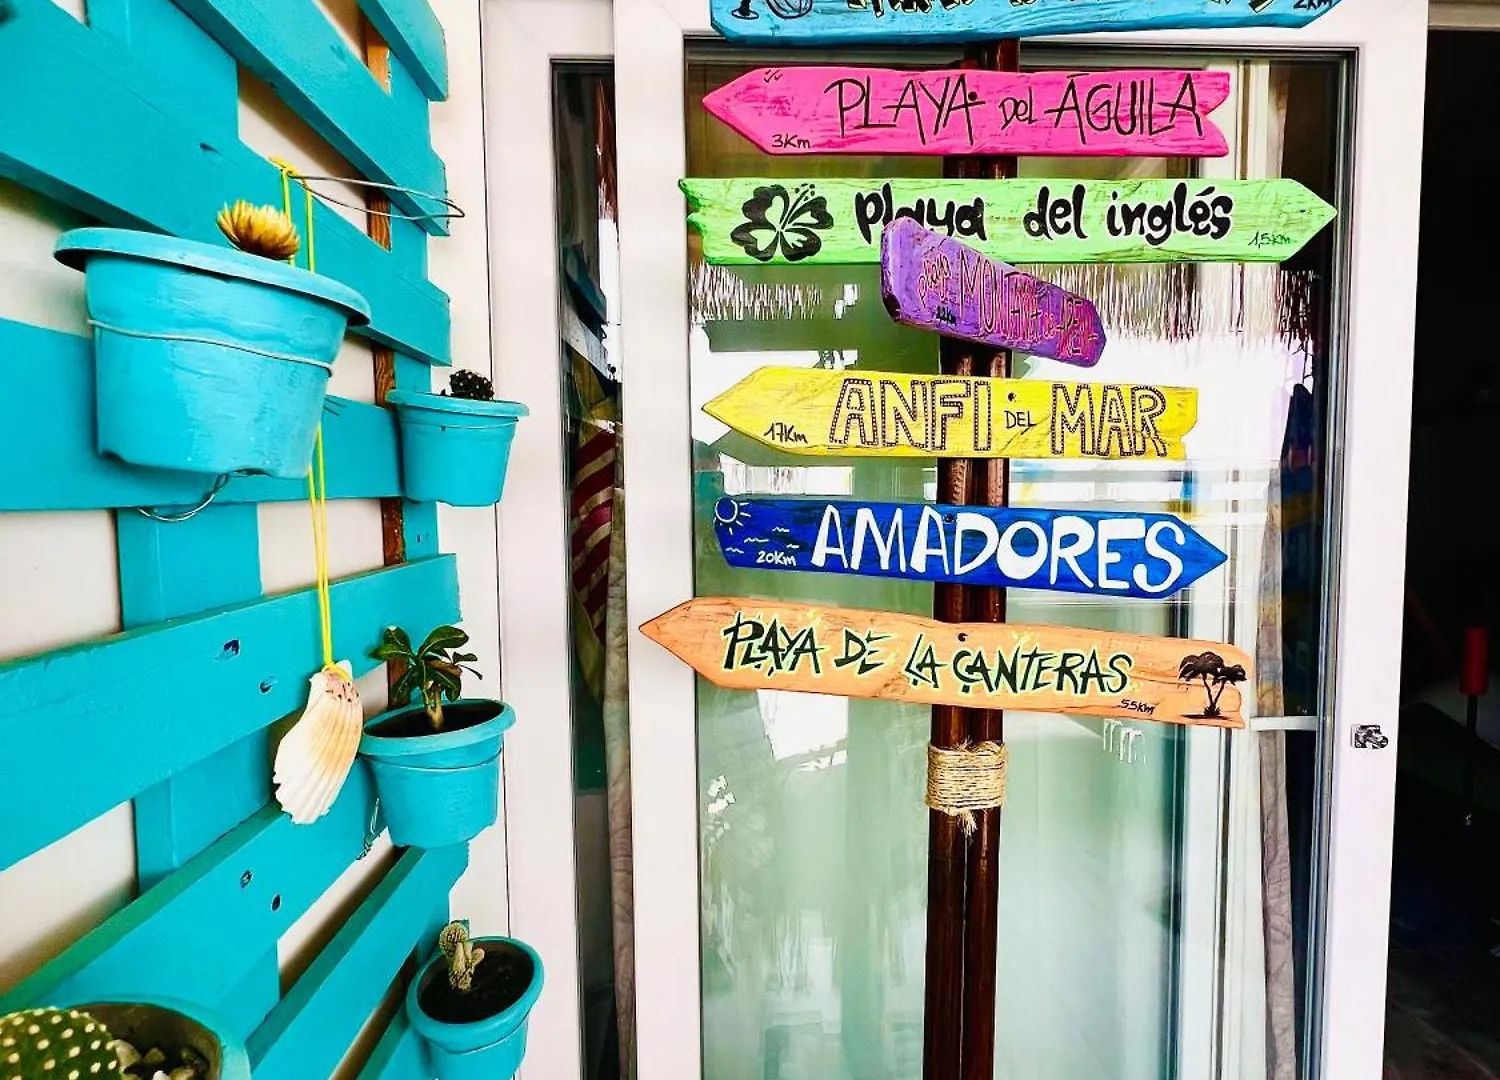 2Km
PLAYA del ÁGUILA
3Km
playa del inglés
1,5km
playa MONTAÑA DE AREN
ANFI DEL MAR
17Km
AMADORES
20Km
PLAYA DE LA CANTERAS
55km